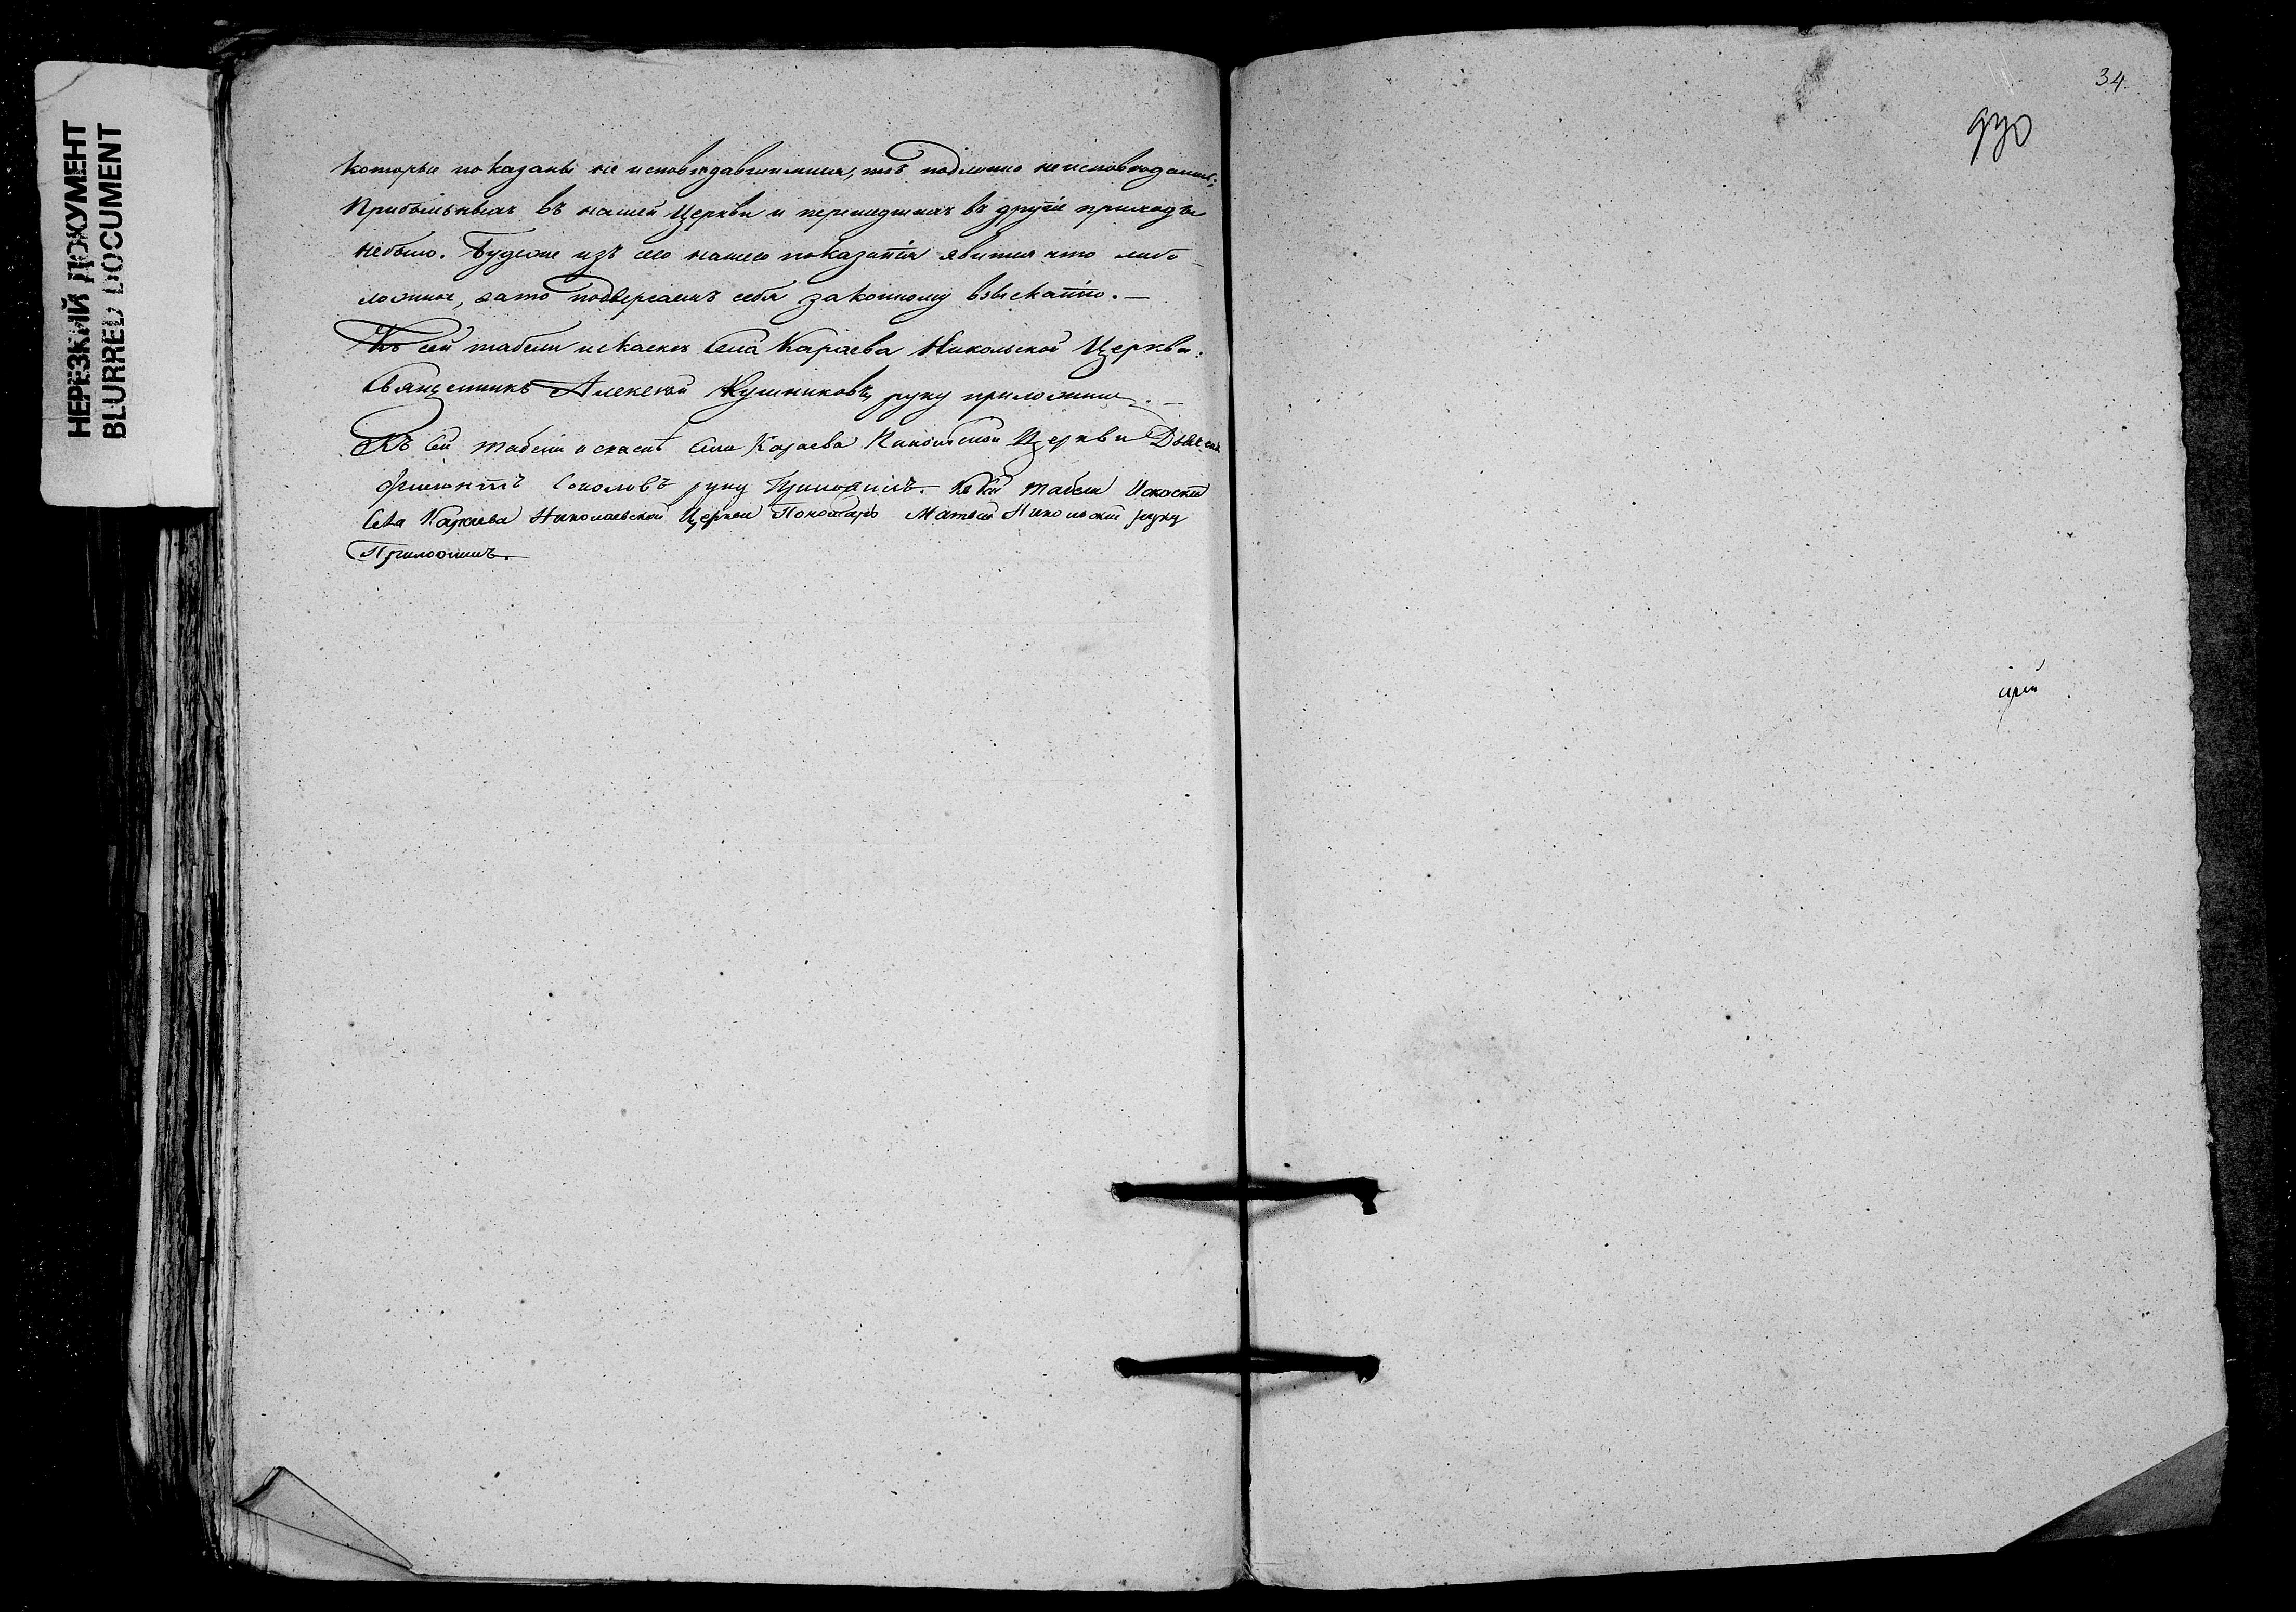 НЕРЕЗКИЙ ДОКУМЕНТ
BLURRED DOCUMENT
которые показаны не исповѣдавшимися, тѣ подлинно неисповѣдались;
Прибыльныхъ въ нашей Церкви и перешедшихъ въ другіе приходы
небыло. Будеже изъ сего нашего показанія явится что либо
ложное, зато подвергаемъ себя законному взысканію. —
Къ сей табели искаскѣ Села Караева Никольской Церкви.
Священникъ Алексѣй Кушниковъ, руку приложилъ. —
Къ сей табели искаскѣ Села Караева Никольской Церкви
Соколовъ руку Приложилъ. Къ сей табели Искаски
Села Караева Николаевской Церкви Пономарь Матвей Никольскій руку
Приложилъ.
34.
930